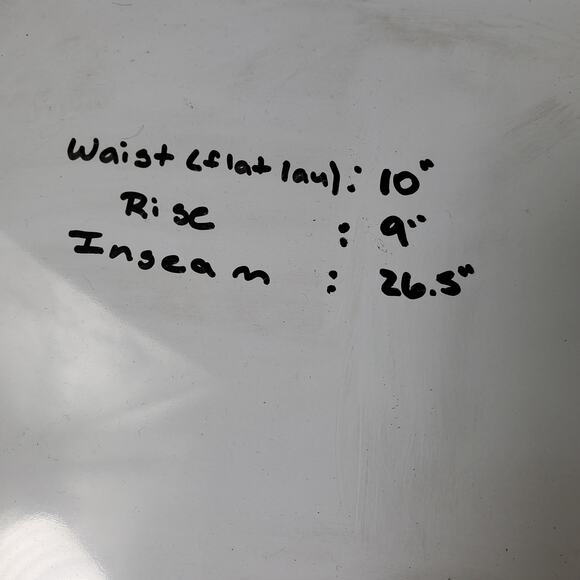 Waist (flat lay): 10"
Rise : 9"
Inseam : 26.5"